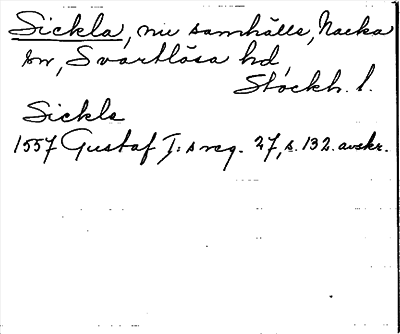 Sickla, nu samhälle, Nacka
sn, Svartlösa hd,
Stockh. l.
Sickla
1557 Gustaf I:s reg. 27, s. 132. avskr.